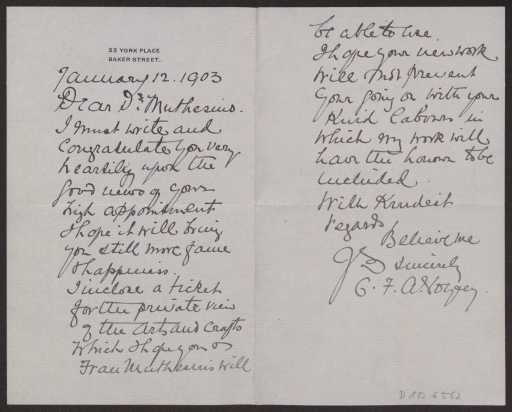 23 YORK PLACE
BAKER STREET.
January 12. 1903
Dear Dr Muthesius.
I must write and
congratulate you very
heartily upon the
good news of your
high appointment
I hope it will bring
you still more fame
& happiness.
I inclose a ticket
for the private view
of the Arts and Crafts
which I hope you or
Frau Muthesius will
be able to use.
I hope your new work
will not prevent
your going on with your
kind labours in
which my work will
have the honour to be
included.
With kindest
regards
Believe me
Yrs sincerely
C. F. A. Voysey.